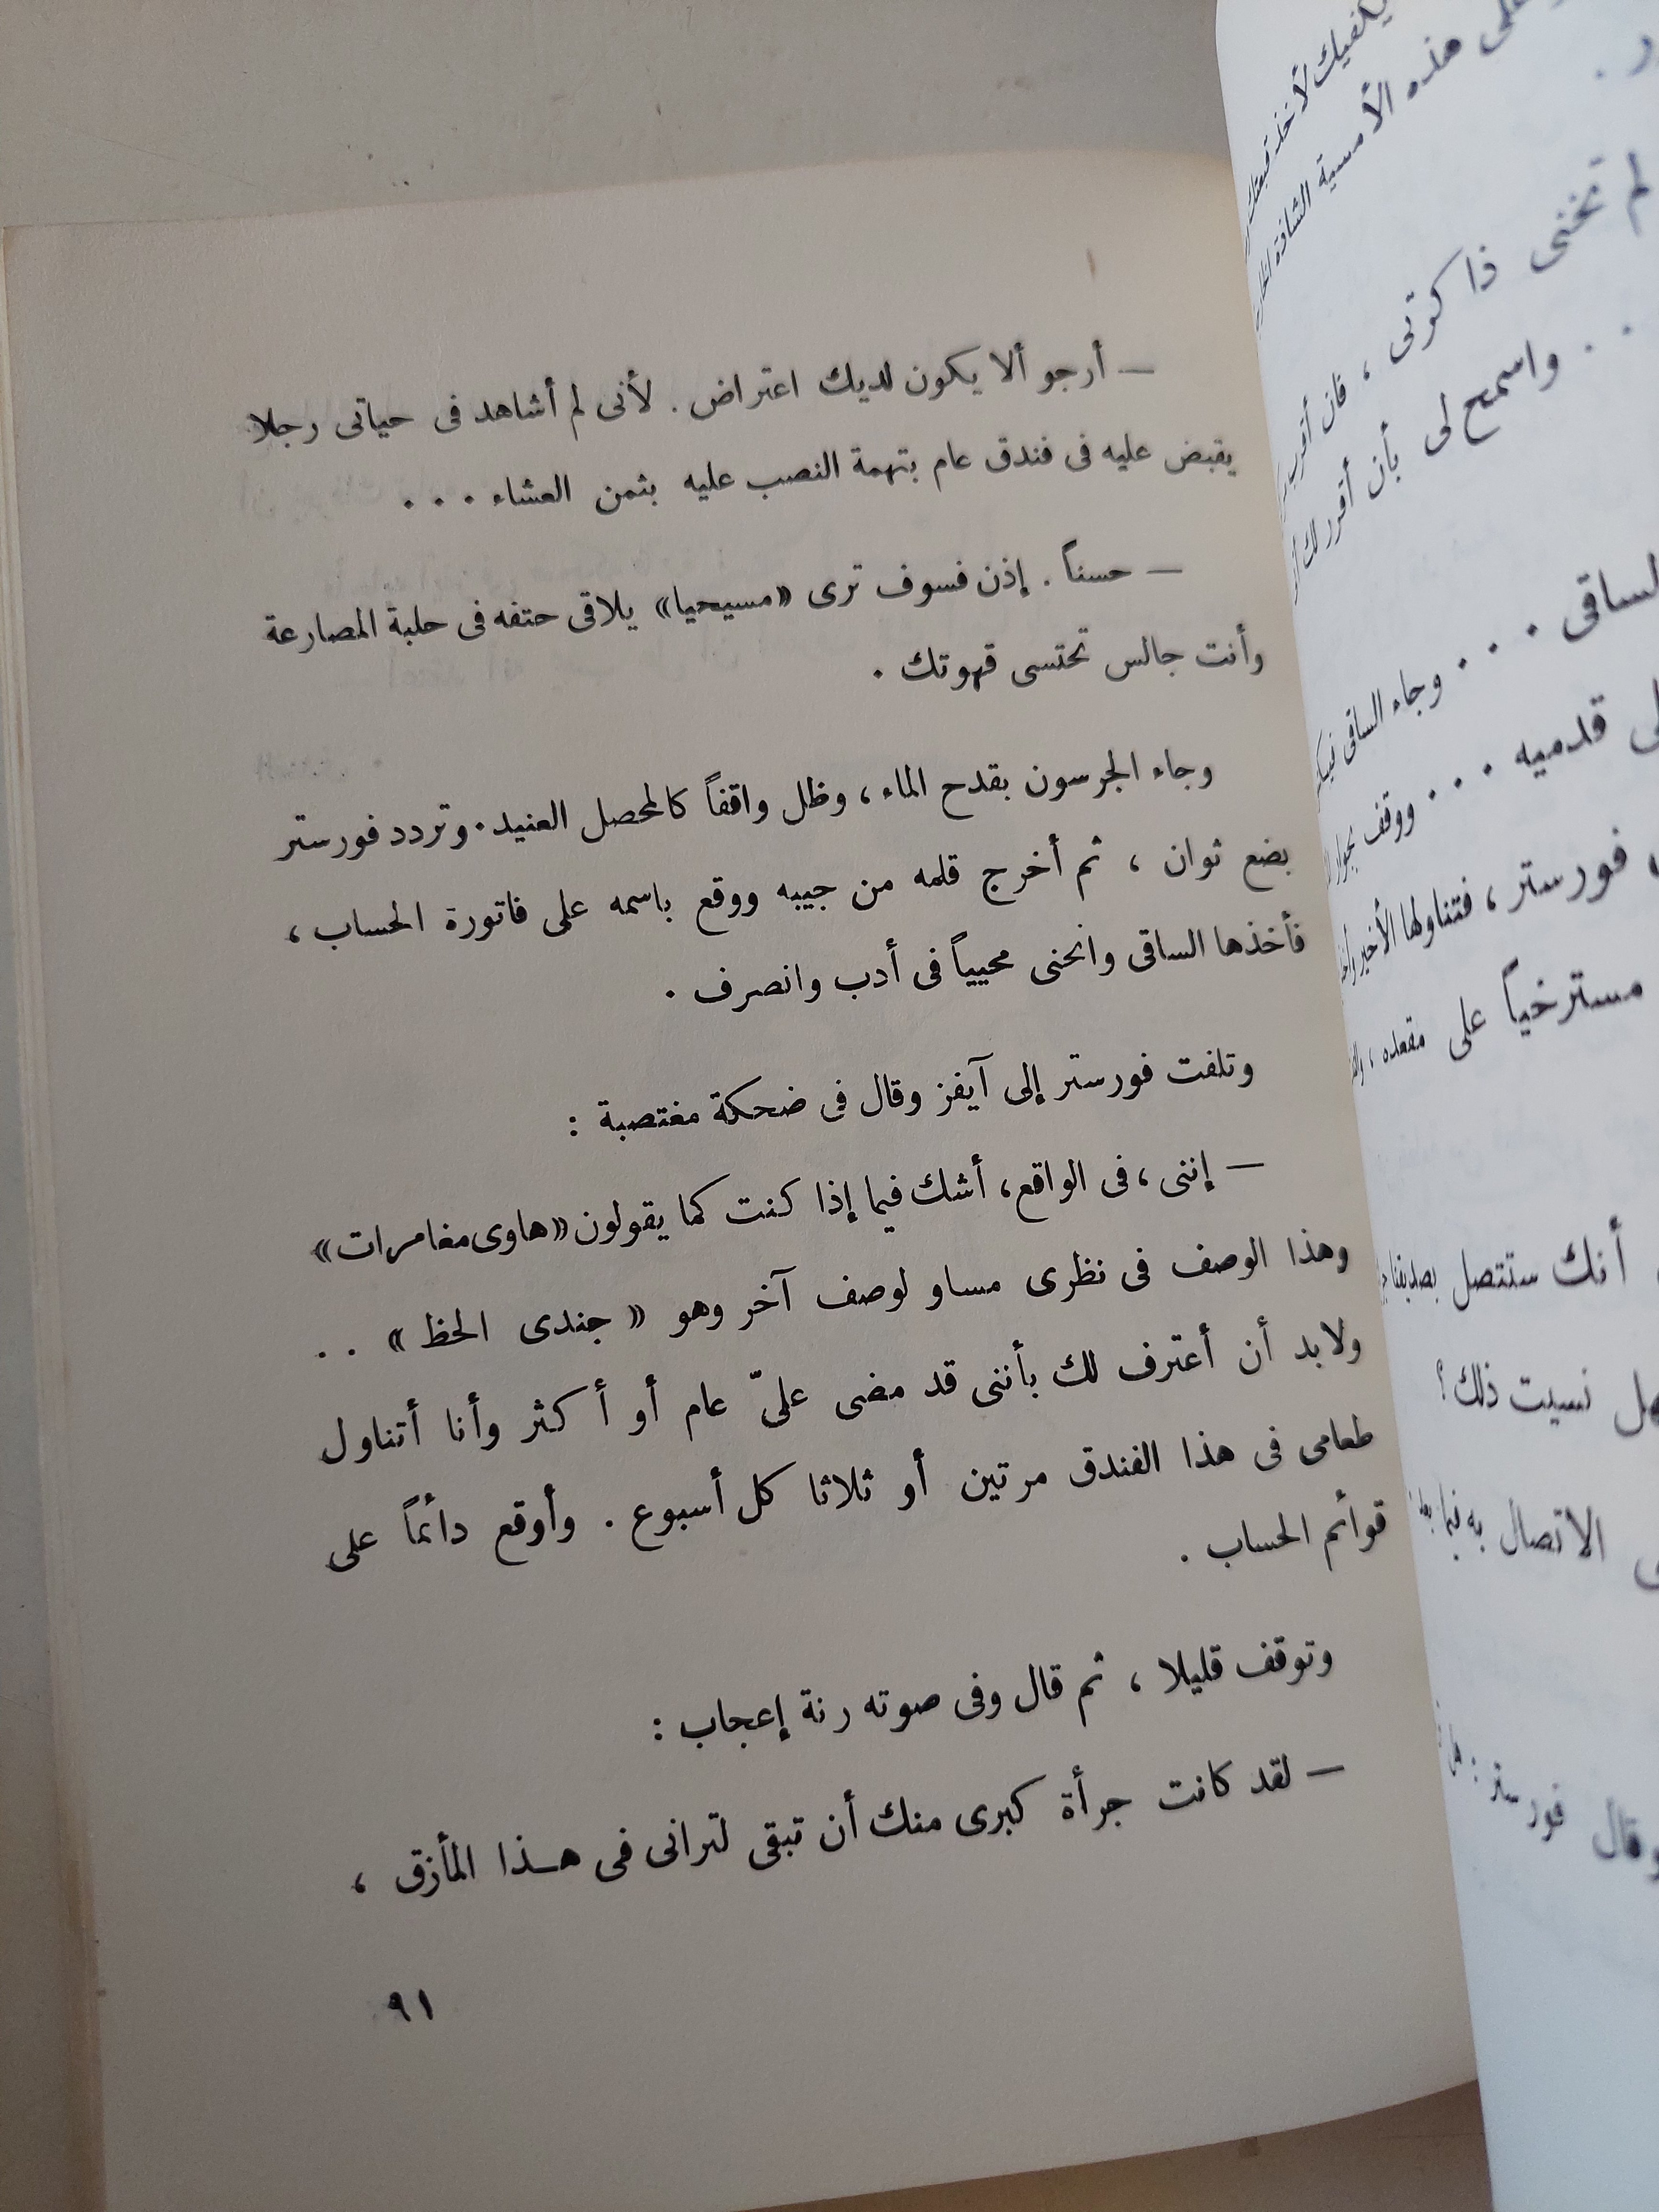 — أرجو ألا يكون لديك اعتراض . لأنى لم أشاهد فى حياتى رجلا
يقبض عليه فى فندق عام بتهمة النصب عليه بثمن العشاء . . .
— حسناً . إذن فسوف ترى «مسيحيا» يلاقى حتفه فى حلبة المصارعة
وأنت جالس تحتسى قهوتك .
وجاء الجرسون بقدح الماء ، وظل واقفاً كالمحصل العنيد . وتردد فورستر
بضع ثوان ، ثم أخرج قلمه من جيبه ووقع باسمه على فاتورة الحساب ،
فأخذها الساقى وانحنى محيياً فى أدب وانصرف .
وتلفت فورستر إلى آيفز وقال فى ضحكة مغتصبة :
— إننى ، فى الواقع ، أشك فيما إذا كنت كما يقولون «هاوى مغامرات»
وهذا الوصف فى نظرى مساو لوصف آخر وهو « جندى الحظ » . .
ولابد أن أعترف لك بأننى قد مضى علىّ عام أو أكثر وأنا أتناول
طعامى فى هذا الفندق مرتين أو ثلاثا كل أسبوع . وأوقع دائماً على
قوائم الحساب .
وتوقف قليلا ، ثم قال وفى صوته رنة إعجاب :
— لقد كانت جرأة كبرى منك أن تبقى لترانى فى هـذا المأزق ،
٩١
هذه الأمسية
لم تخنى ذاكرتى ، فان
. . واسمح لى بأن أقرر لك
الساقى . . . وجاء الساقى
قدميه . . . ووقف
فورستر ، فتناولها الأخير
مسترخياً على مقعده ،
أنك ستتصل بصديقنا
نسيت ذلك ؟
الاتصال به فيما بعد
وقال فورستر :